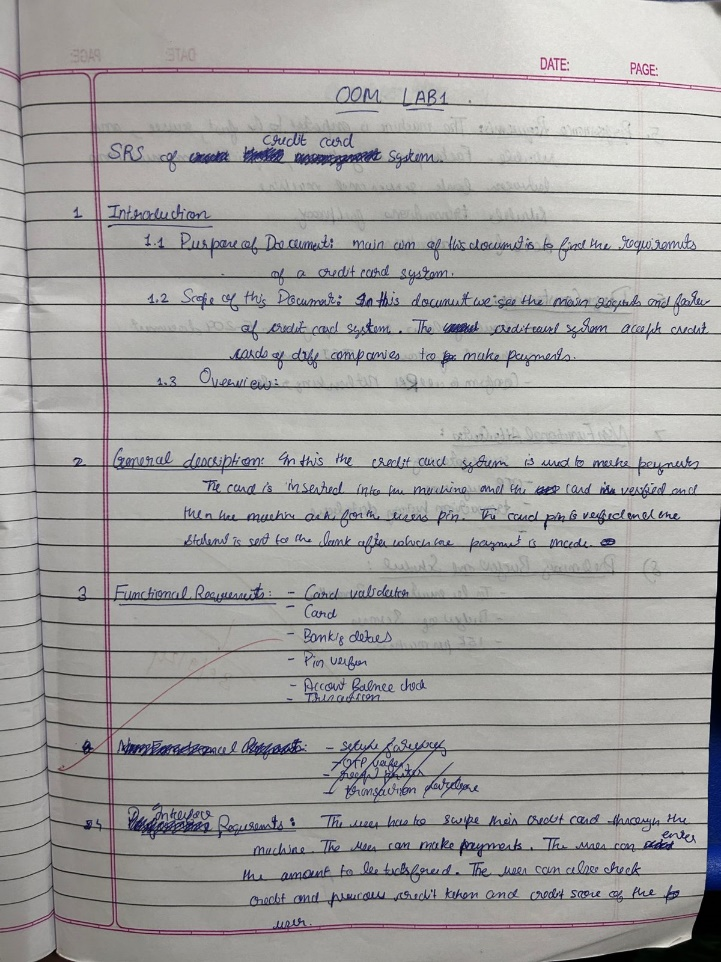 DATE:
PAGE:
OOM LAB1.
credit card
SRS of system.
1 Introduction
1.1 Purpose of Document: main aim of this document is to find the requiremnts
of a credit card system.
1.2 Scope of this Document: In this document we see the main and
of credit card system. The credit card system accepts credit
cards of diff companies to make payments.
1.3 Overview:
2 General description: In this the credit card system is used to make payments
The card is inserted into the machine and the card is verified and
then the machine asks for the users pin. The card pin is verified and the
is sent to the bank after which the payment is made.
3 Functional Requirements: - Card validation
- Card
- Bank's
- Pin
- Account Balnce check
-
- secure
- OTP
-
- transaction
4 Interface Requirements: The user has to swipe credit card through the
machine. The user can make payments. The user can enter
the amount to be The user can also check
credit and previous credit taken and credit score of the
user.